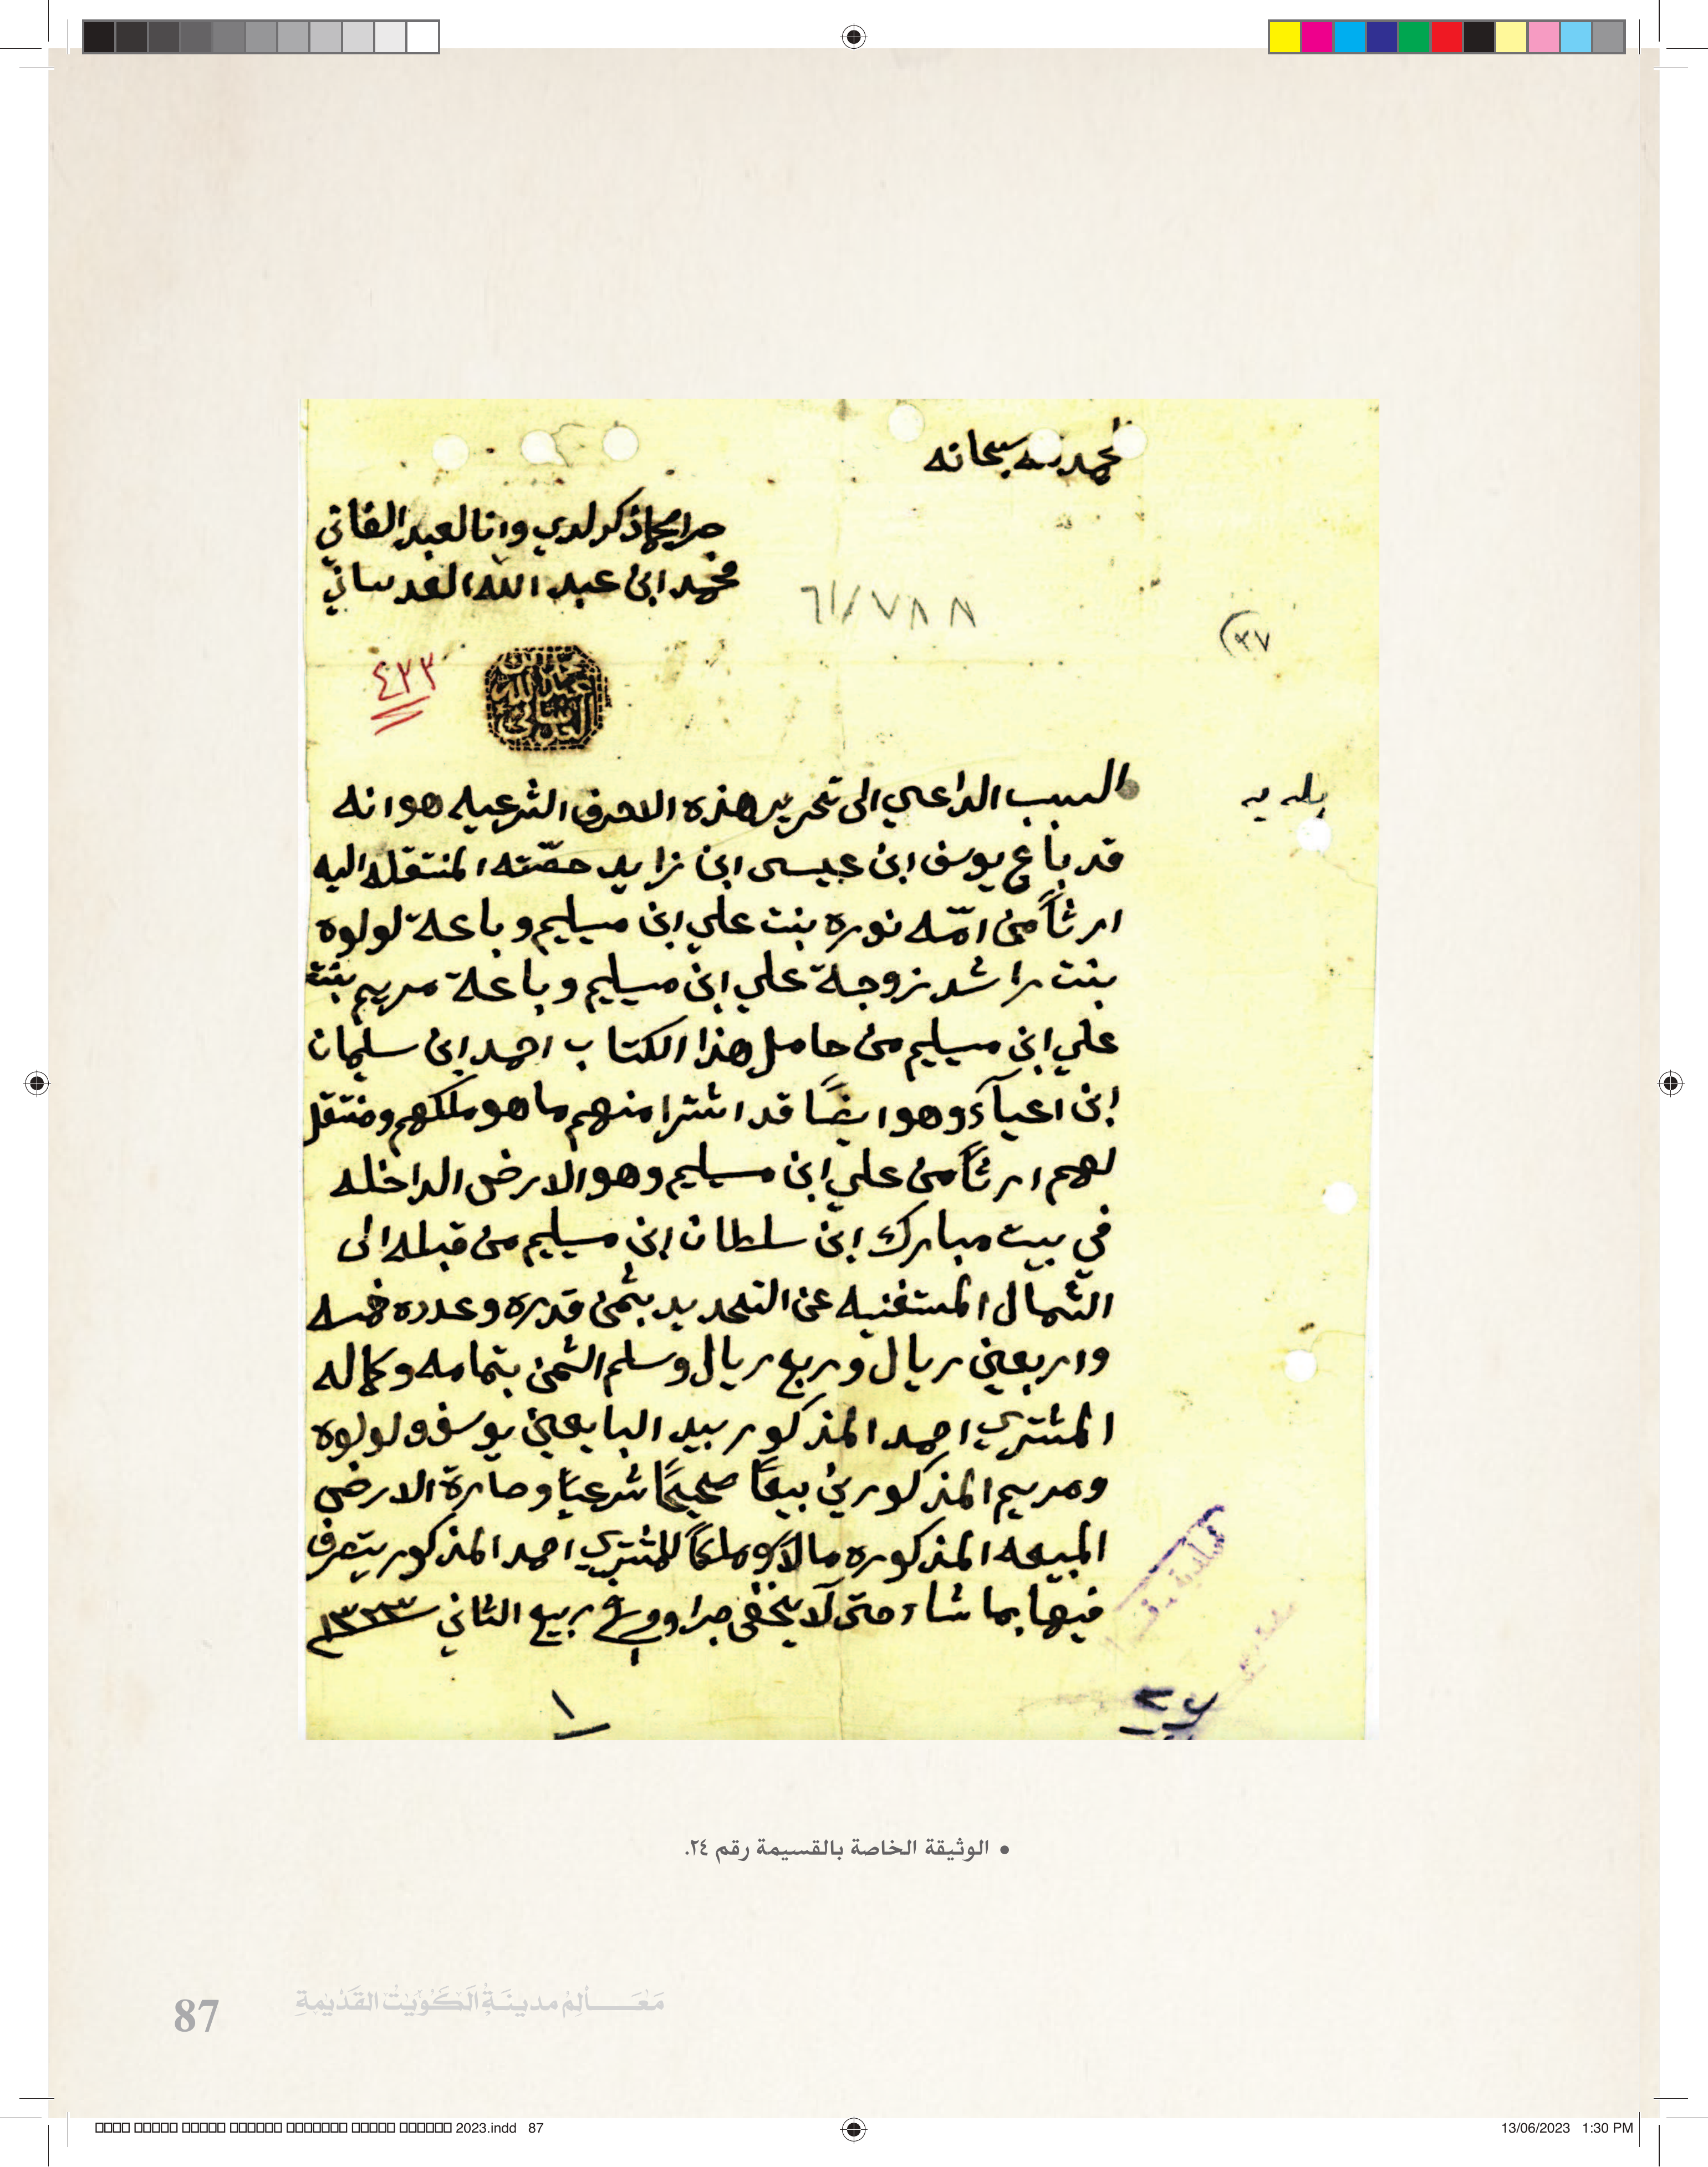 الحمد لله سبحانه
جرا بما ذكر لدي وانا العبد الفاني
محمد ابن عبد الله العدساني
٦١/٧٨٨
٣٧
٤٣٣
محمد بن عبد الله العدساني
السبب الداعي الى تحرير هذه الاحرف الشرعيه هو انه
بلديه
قد باع يوسف ابن عيسى ابن زايد حصّته المنتقله اليه
ارثاً من امّه نوره بنت علي ابن مسيليم وباعة لولوه
بنت راشد زوجة علي ابن مسيليم وباعة مريم بنت
علي ابن مسيليم من حامل هذا الكتاب احمد ابن سليمان
ابن اعيآد وهو ايضاً قد اشترا منهم ما هو ملكهم ومنتقل
لهم ارثاً من علي ابن مسيليم وهو الارض الداخله
في بيت مبارك ابن سلطان ابن مسيليم من قبله الى
الشمال المستغنيه عن التحديد بثمن قدره وعدده خمسه
واربعين ريال وربع ريال وسلم الثمن بتمامه وكماله
المشتري احمد المذكور بيد البايعين يوسف ولولوه
ومريم المذكورين بيعاً صحيحاً شرعياً وصارة الارض
المبيعه المذكوره مالاً وملكاً للمشتري احمد المذكور يتصرف
فيها بما شاء حتى لآ يخفى جرا ووقع في ربيع الثاني ١٣٣٣
١
٢٧
• الوثيقة الخاصة بالقسيمة رقم ٢٤.
87 مَعَالِم مدينَةِ الكُوَيْت القَدِيمَةِ
2023.indd 87
13/06/2023 1:30 PM